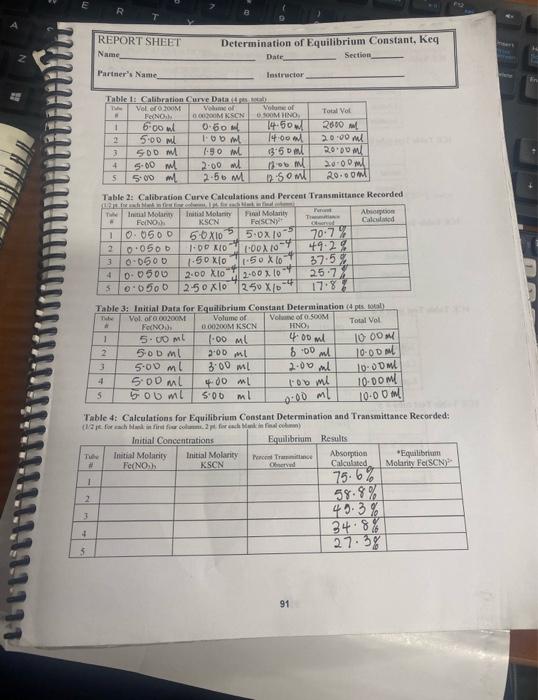 REPORT SHEET Determination of Equilibrium Constant, Keq
Name Date Section
Partner's Name Instructor
Table 1: Calibration Curve Data (4 pts. total)
Tube # Vol. of 0.200M Fe(NO₃)₃ Volume of 0.00200M KSCN Volume of 0.500M HNO₃ Total Vol.
1 5.00 ml 0.50 ml 14.50 ml 2000 ml
2 5.00 ml 1.00 ml 14.00 ml 20.00 ml
3 500 ml 1.50 ml 13.50 ml 20.00 ml
4 5.00 ml 2.00 ml 13.00 ml 20.00 ml
5 5.00 ml 2.50 ml 12.50 ml 20.00 ml
Table 2: Calibration Curve Calculations and Percent Transmittance Recorded
Tube # Initial Molarity Fe(NO₃)₃ Initial Molarity KSCN Final Molarity Fe(SCN)²⁺ Percent Transmittance Observed Absorption Calculated
1 0.0500 5.0X10⁻⁵ 5.0X10⁻⁵ 70.7%
2 0.0500 1.00 X10⁻⁴ 1.00X10⁻⁴ 49.2%
3 0.0500 1.50 X10⁻⁴ 1.50 X 10⁻⁴ 37.5%
4 0.0500 2.00 X10⁻⁴ 2.00 X 10⁻⁴ 25.7%
5 0.0500 2.50 X10⁻⁴ 2.50 X10⁻⁴ 17.8%
Table 3: Initial Data for Equilibrium Constant Determination (4 pts. total)
Tube # Vol. of 0.00200M Fe(NO₃)₃ Volume of 0.00200M KSCN Volume of 0.500M HNO₃ Total Vol.
1 5.00 ml 1.00 ml 4.00 ml 10.00 ml
2 5.00 ml 2.00 ml 8.00 ml 10.00 ml
3 5.00 ml 3.00 ml 2.00 ml 10.00 ml
4 5.00 ml 4.00 ml 1.00 ml 10.00 ml
5 5.00 ml 5.00 ml 0.00 ml 10.00 ml
Table 4: Calculations for Equilibrium Constant Determination and Transmittance Recorded:
(1/2 pt. for each blank in first four columns, 2 pt. for each blank in final column)
Initial Concentrations Equilibrium Results
Tube # Initial Molarity Fe(NO₃)₃ Initial Molarity KSCN Percent Transmittance Observed Absorption Calculated *Equilibrium Molarity Fe(SCN)²⁺
1 75.6%
2 58.8%
3 45.3%
4 34.8%
5 27.3%
91